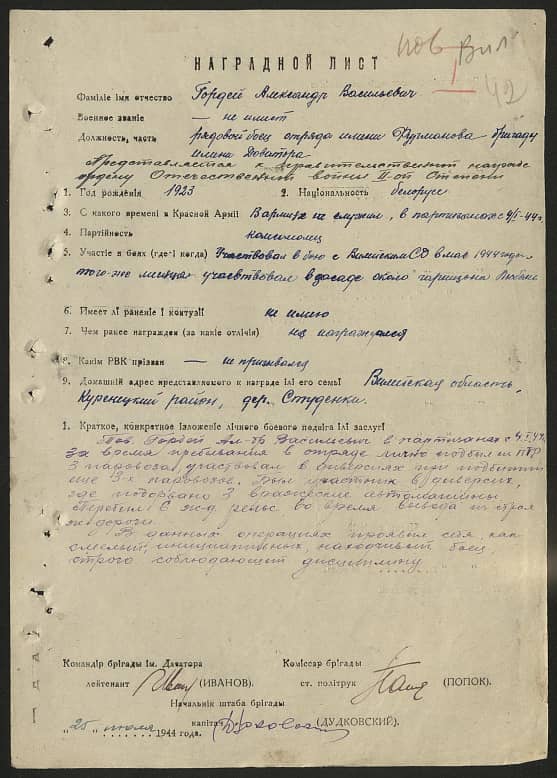 пов Вил
42
НАГРАДНОЙ ЛИСТ
Фамілiе імя отчество Гордей Александр Васильевич
Военное званіе — не имеет
Должность, часть рядовой боец отряда имени Фурманова бригады
имени Доватора
Представляется к правительственной награде
ордену Отечественной войны II-ой Степени
1. Год рожденія 1923 2. Національность белорус
3. С какого времени в Красной Арміі В армии не служил, в партизанах с 4/I-44 г.
4. Партійность комсомолец
5. Участіе в боях (где і когда) Участвовал в бою с Вилейским СД в мае 1944 года
того-же месяца участвовал в засаде около
6. Имеет лі раненіе і контузіі не имею
7. Чем ранее награжден (за какіе отлічія) не награждался
8. Какім РВК прізван — не призывался
9. Домашній адрес представляемого к награде ілі его семьі Вилейская область,
Куренецкий район, дер. Студенки.
1. Краткое, конкретное ізложеніе лічного боевого подвіга ілі заслугі
Тов. Гордей Ал-др Васильевич в партизанах с 4.I.44
За время пребывания в отряде лично подбил из ПТР
3 паровоза, участвовал в диверсиях при подбитии
еще 3-х паровозов. Был участник в диверсии,
где подорвано 3 вражеские автомашины
Перебил 6 ж.д. рельс во время вывода из строя
ж-дороги.
В данных операциях проявил себя, как
смелый, инициативный, находчивый боец,
строго соблюдающий дисциплину
Командір брігады ім. Даватора
лейтенант (ИВАНОВ).
Коміссар брігады
ст. політрук (ПОПОК).
Начальнік штаба брігады
капітан (ДУДКОВСКИЙ).
„25" июля 1944 года.